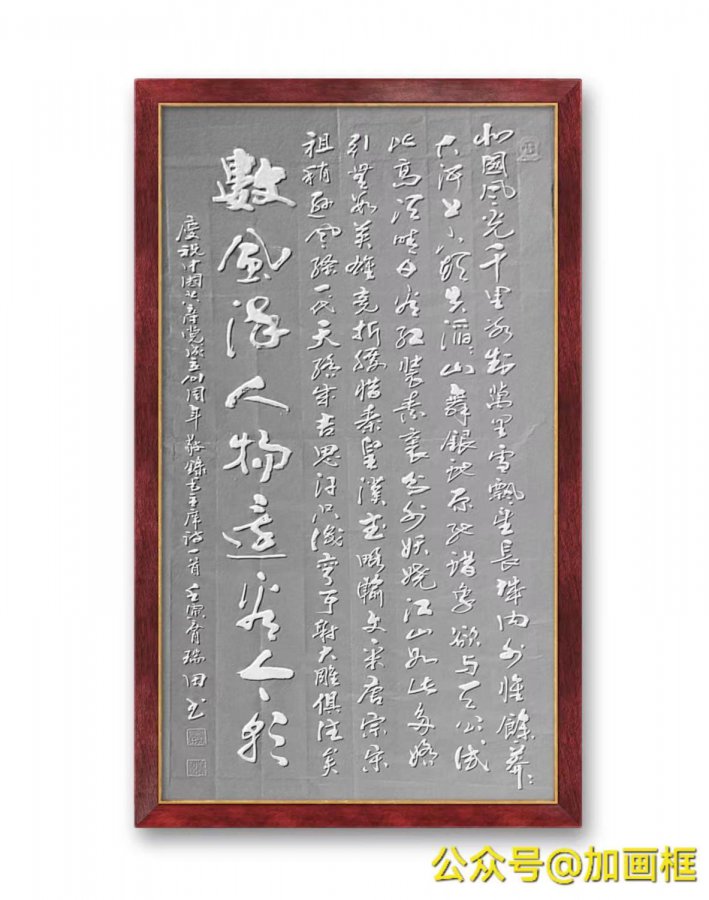 北國風光千里冰封萬里雪飄望長城內外惟餘莽〻
大河上下頓失滔〻山舞銀蛇原馳蜡象欲與天公試
比高須晴日看紅裝素裹分外妖嬈江山如此多嬌
引無數英雄競折腰惜秦皇漢武略輸文采唐宗宋
祖稍遜風騷一代天驕成吉思汗只識彎弓射大雕俱往矣
數風流人物還看今朝
慶祝中國共產党成立周年敬錄毛主席詩一首壬寅瑞田书
公众号@加画框